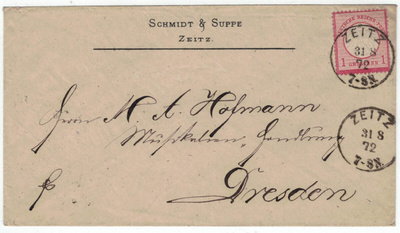 SCHMIDT & SUPPE
ZEITZ.
1 1
ZEITZ
31 8
72
7-8N.
Herrn M. A. Hofmann
Musikalien Handlung
ZEITZ
31 8
72
7-8N.
Dresden